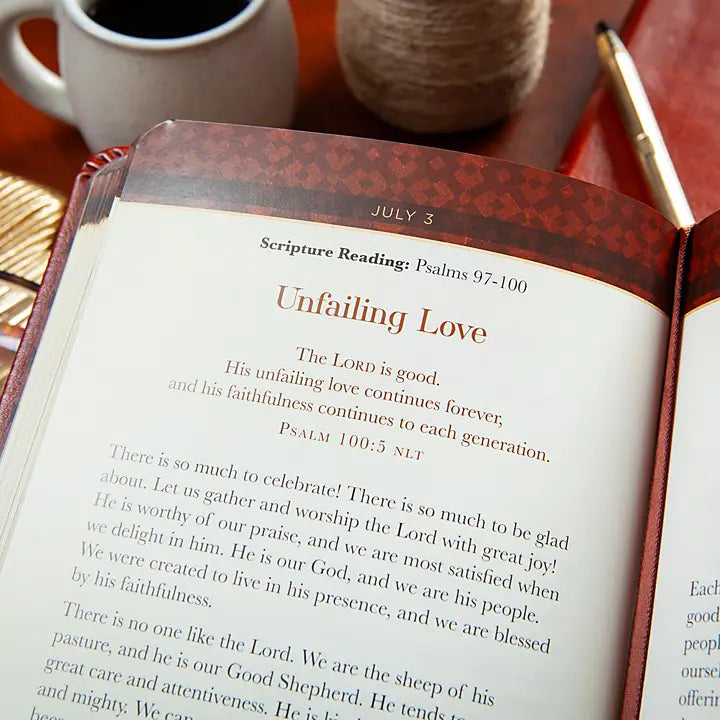 JULY 3
Scripture Reading: Psalms 97-100
Unfailing Love
The LORD is good.
His unfailing love continues forever,
and his faithfulness continues to each generation.
PSALM 100:5 NLT
There is so much to celebrate! There is so much to be glad
about. Let us gather and worship the Lord with great joy!
He is worthy of our praise, and we are most satisfied when
we delight in him. He is our God, and we are his people.
We were created to live in his presence, and we are blessed
by his faithfulness.
There is no one like the Lord. We are the sheep of his
pasture, and he is our Good Shepherd. He tends to
great care and attentiveness. He is
and mighty. We can
Each
good
peopl
ourse
offerin